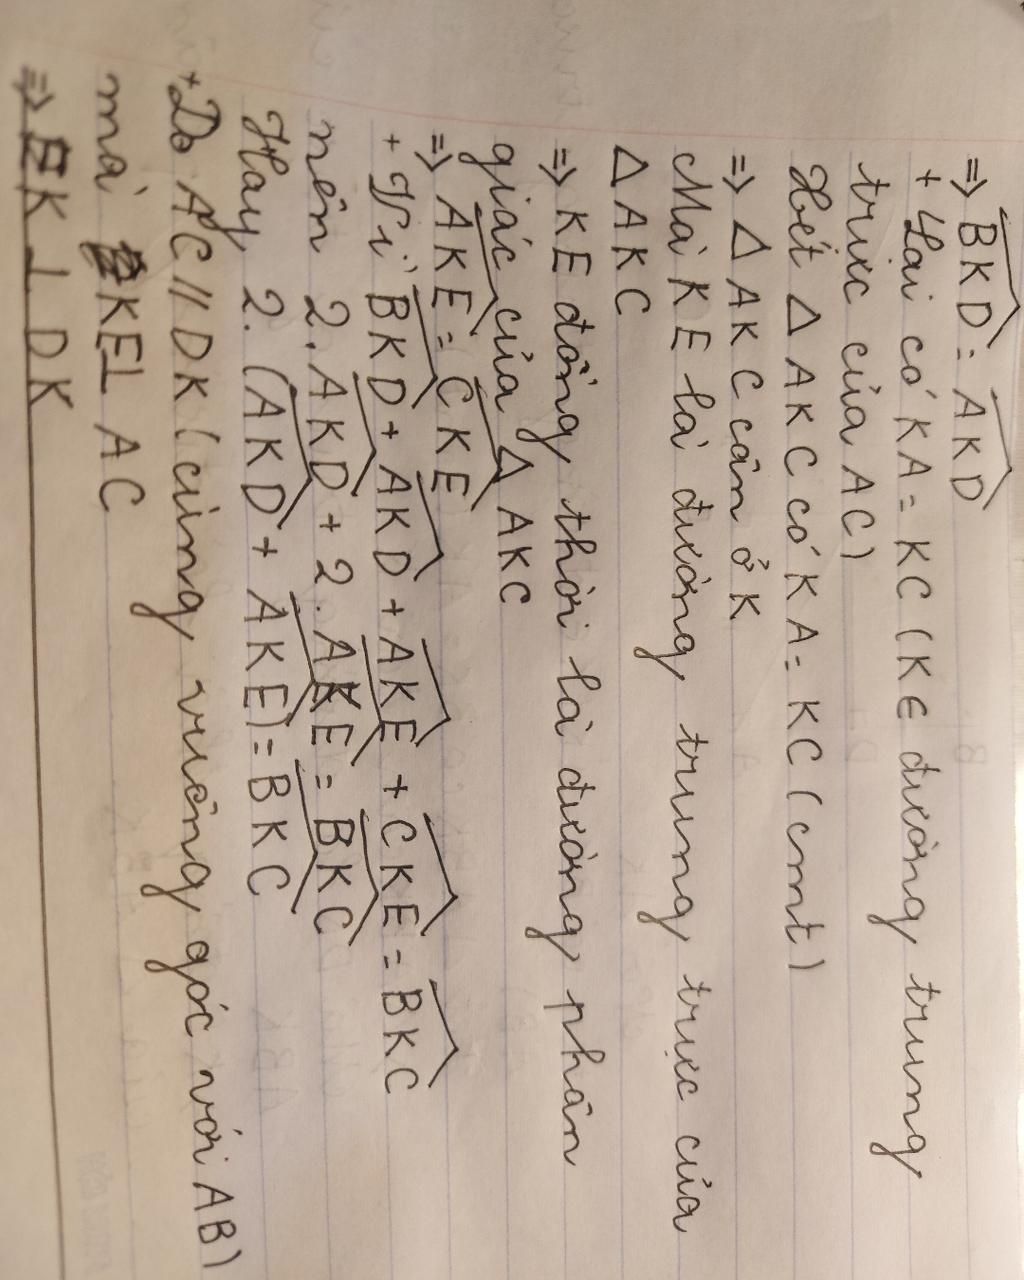 => BKD = AKD
+ Lại có KA = KC (KE đường trung
trực của AC)
Xét △ AKC có KA = KC (cmt)
=> △ AKC cân ở K
Mà KE là đường trung trực của
△ AKC
=> KE đồng thời là đường phân
giác của △ AKC
=> AKE = CKE
+ Vì BKD + AKD + AKE + CKE = BKC
nên 2. AKD + 2. AKE = BKC
Hay 2. (AKD + AKE) = BKC
+ Do AC // DK (cùng vuông góc với AB)
mà KE ⊥ AC
=> EK ⊥ DK